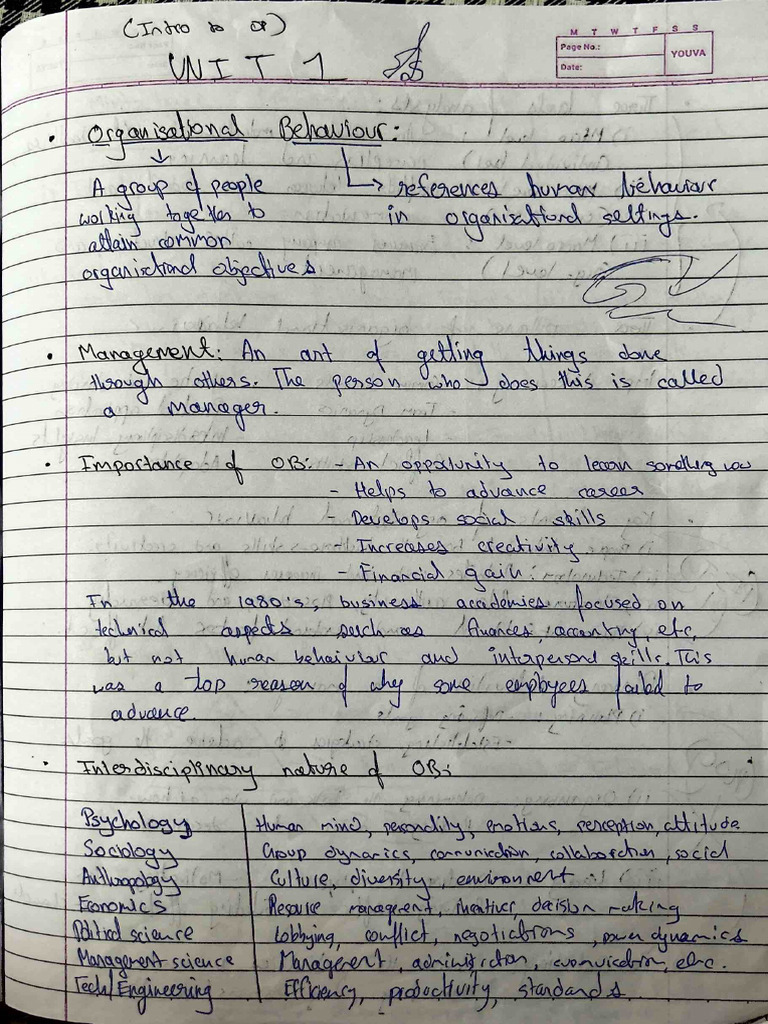 (Intro to OB)
UNIT 1
M T W T F S S
Page No.:
YOUVA
Date:
• Organisational Behaviour:
A group of people → references human behaviour
working together to in organisational settings.
attain common
organisational objectives
• Management: An art of getting things done
through others. The person who does this is called
a manager.
• Importance of OB: - An opportunity to learn something new
- Helps to advance career
- Develops social skills
- Increases creativity
- Financial gain.
In the 1980's, business academies focused on
technical aspects such as finances, accounting, etc,
but not human behaiviar and interpersonal skills. This
was a top reason of why some employees failed to
advance.
• Interdisciplinary nature of OB:
Psychology Human mind, personality, emotions, perception, attitude
Sociology Group dynamics, communication, collaboration, social
Anthropology Culture, diversity, environment
Economics Resource management, incentives, decision making
Political science Lobbying, conflict, negotiations, power dynamics
Management science Management, administration, communication, etc.
Tech/Engineering Efficiency, productivity, standards.